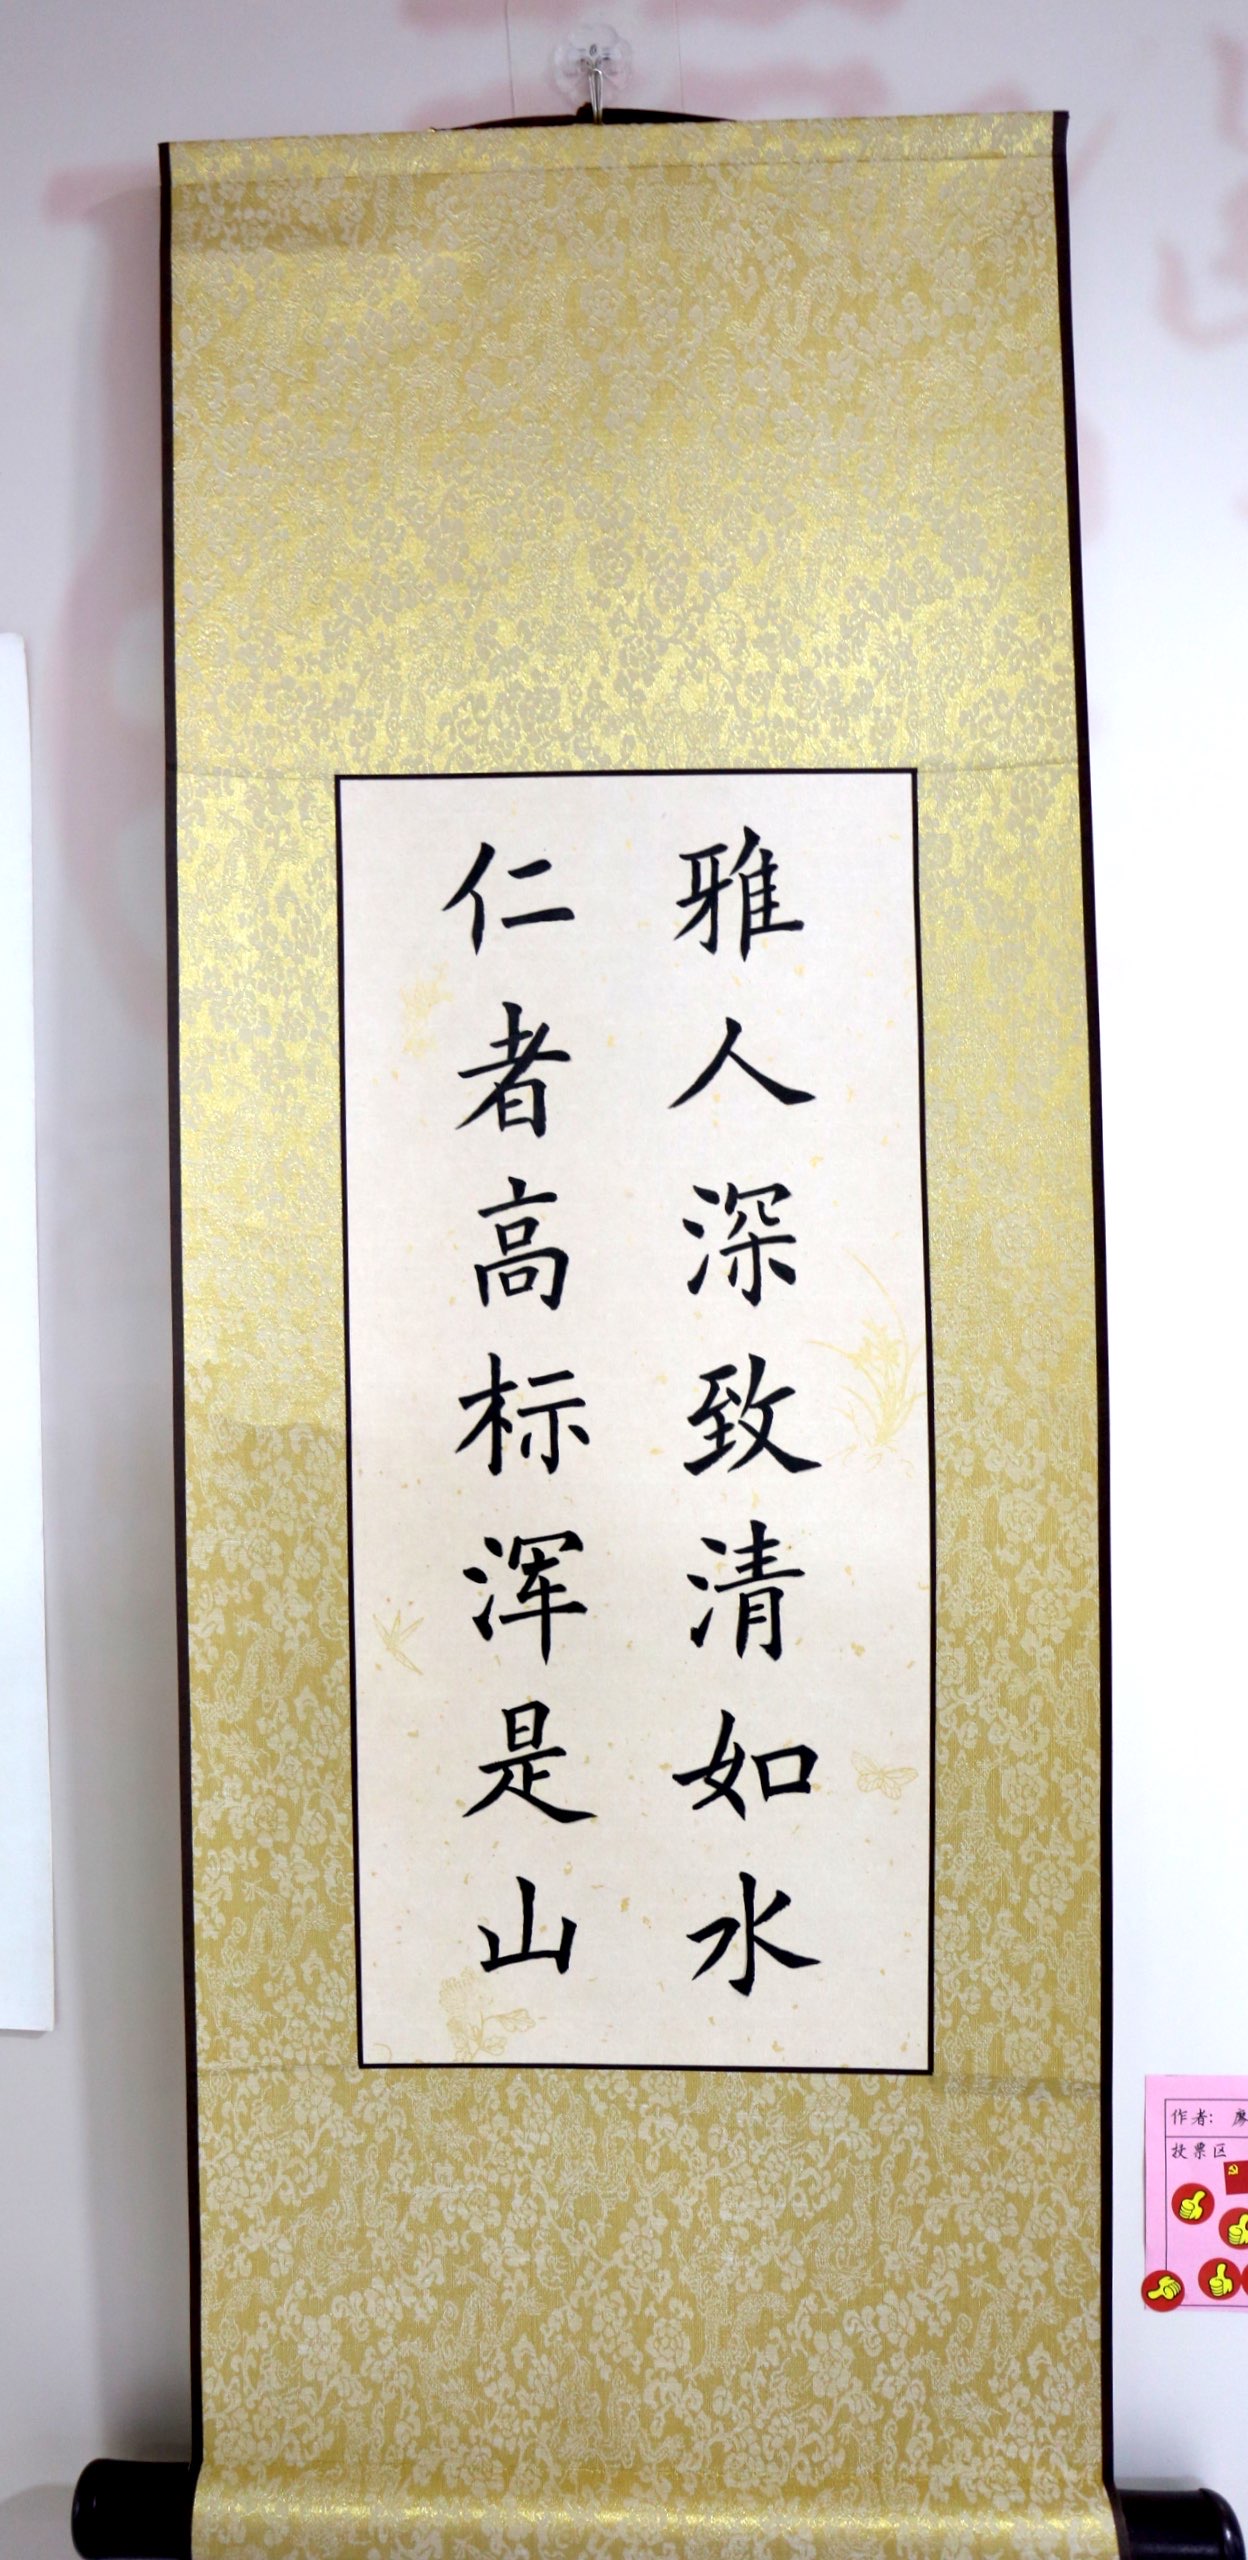 雅人深致清如水
仁者高标浑是山
作者：廖
投票区